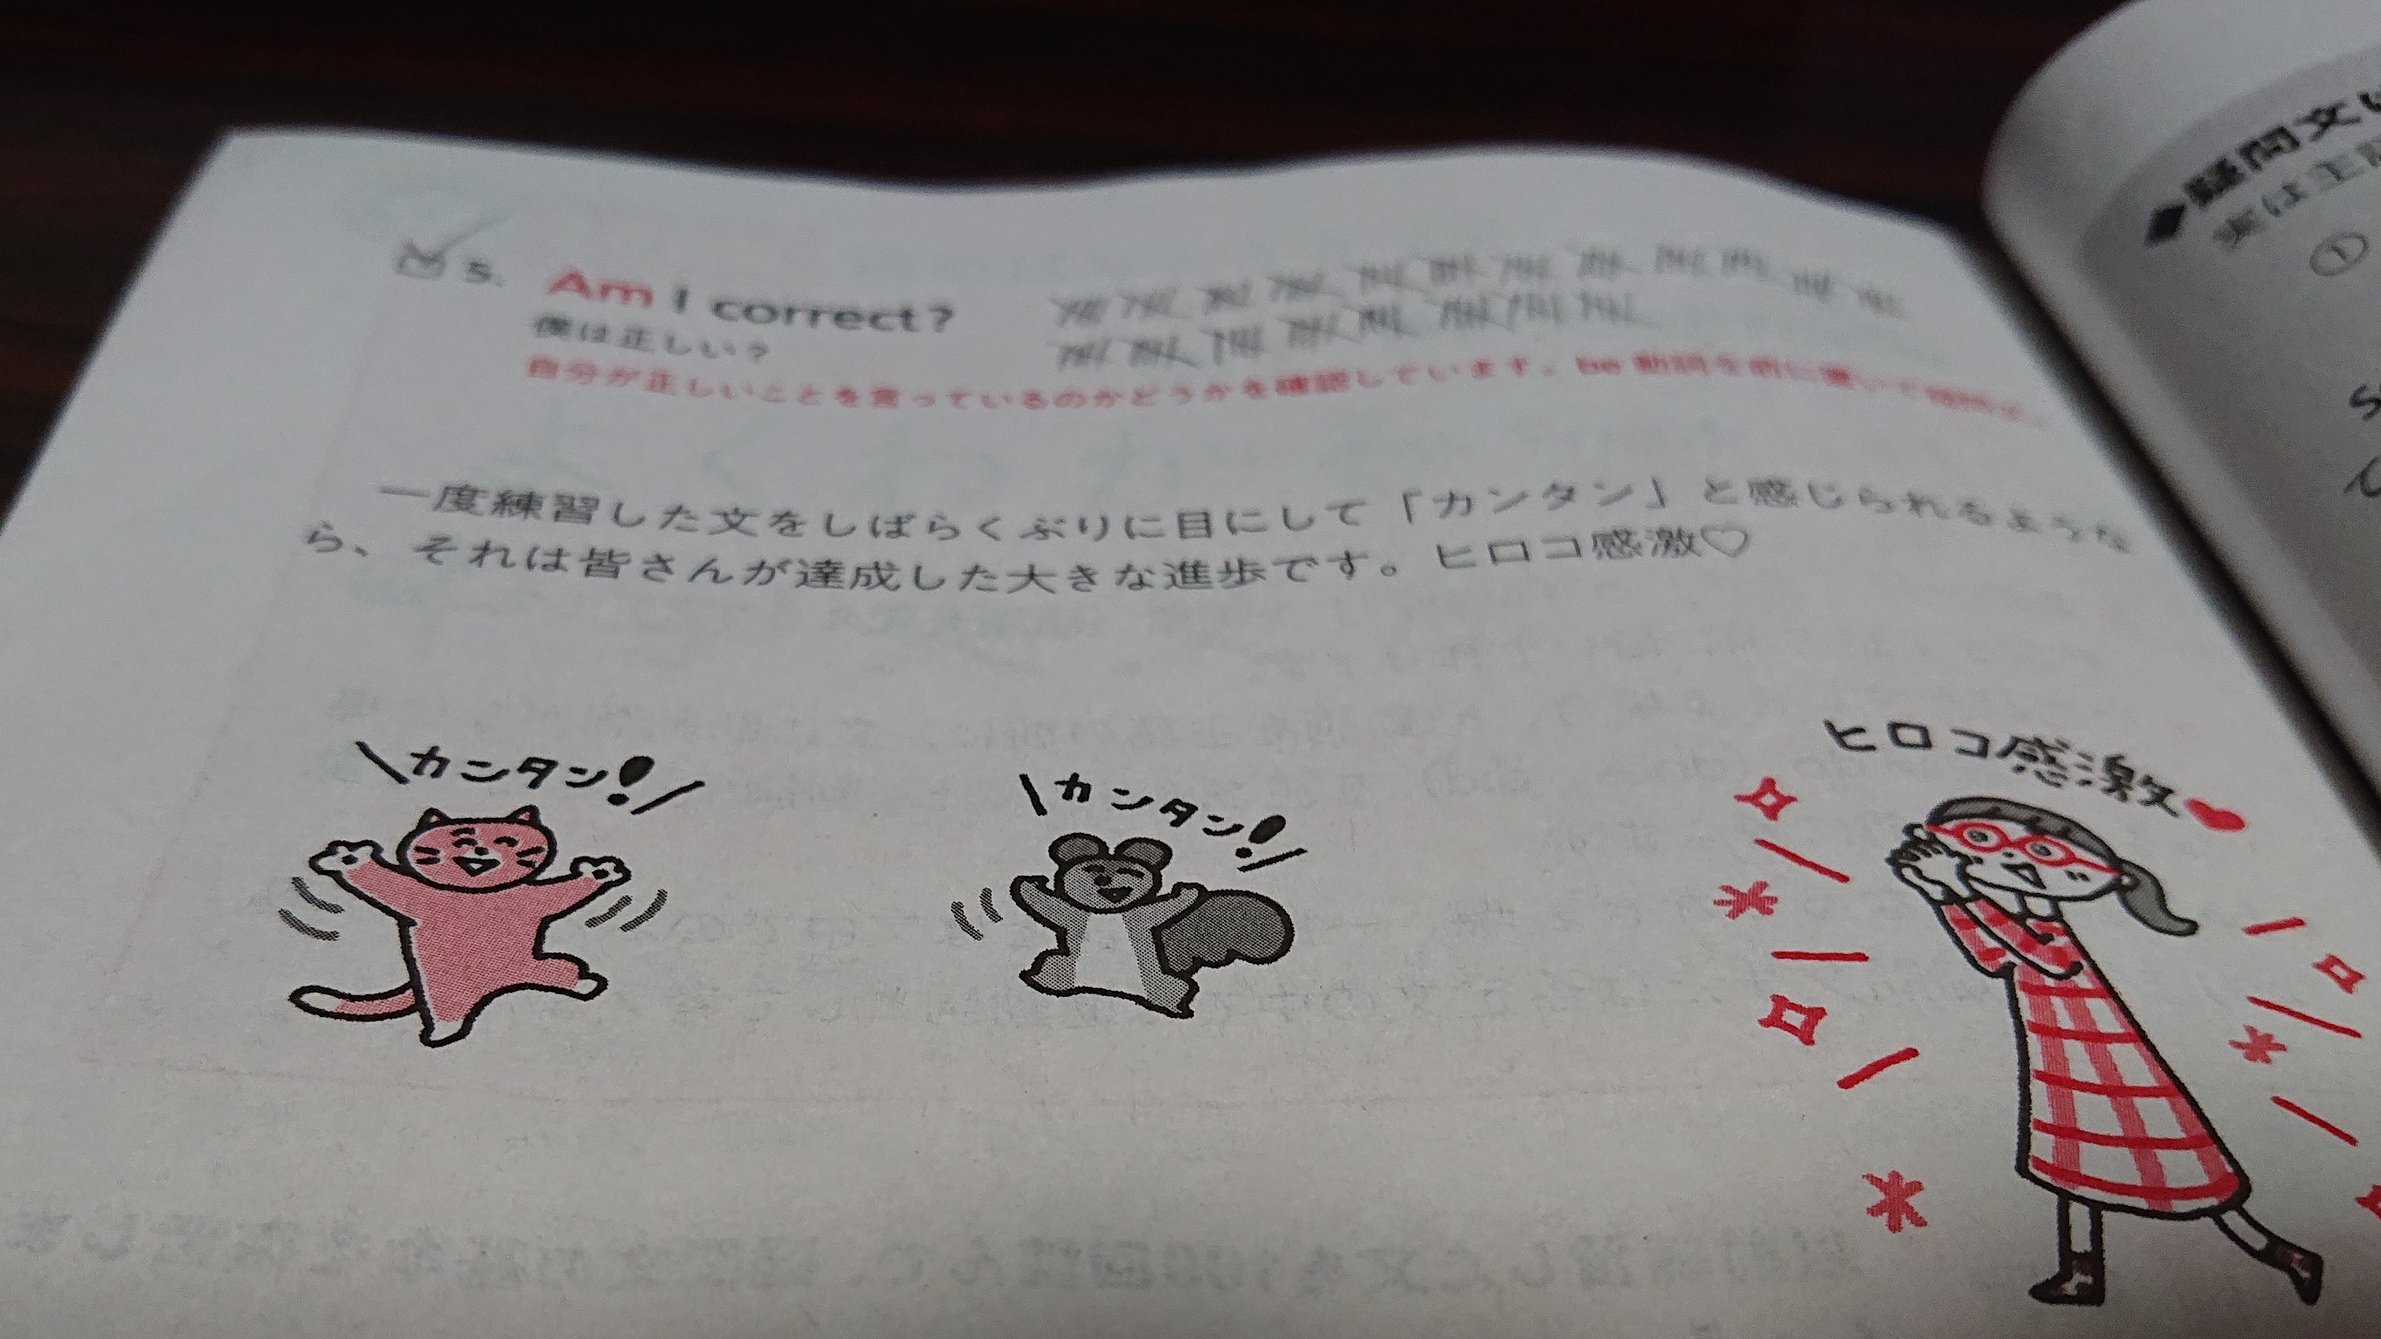 5. Am I correct?
僕は正しい?
自分が正しいことを言っているのかどうかを確認しています。be 動詞を前に置いて
一度練習した文をしばらくぶりに目にして「カンタン」と感じられるような
ら、それは皆さんが達成した大きな進歩です。ヒロコ感激♡
\カンタン!/
\カンタン!/
ヒロコ感激♥
◆疑問文
実は主
①